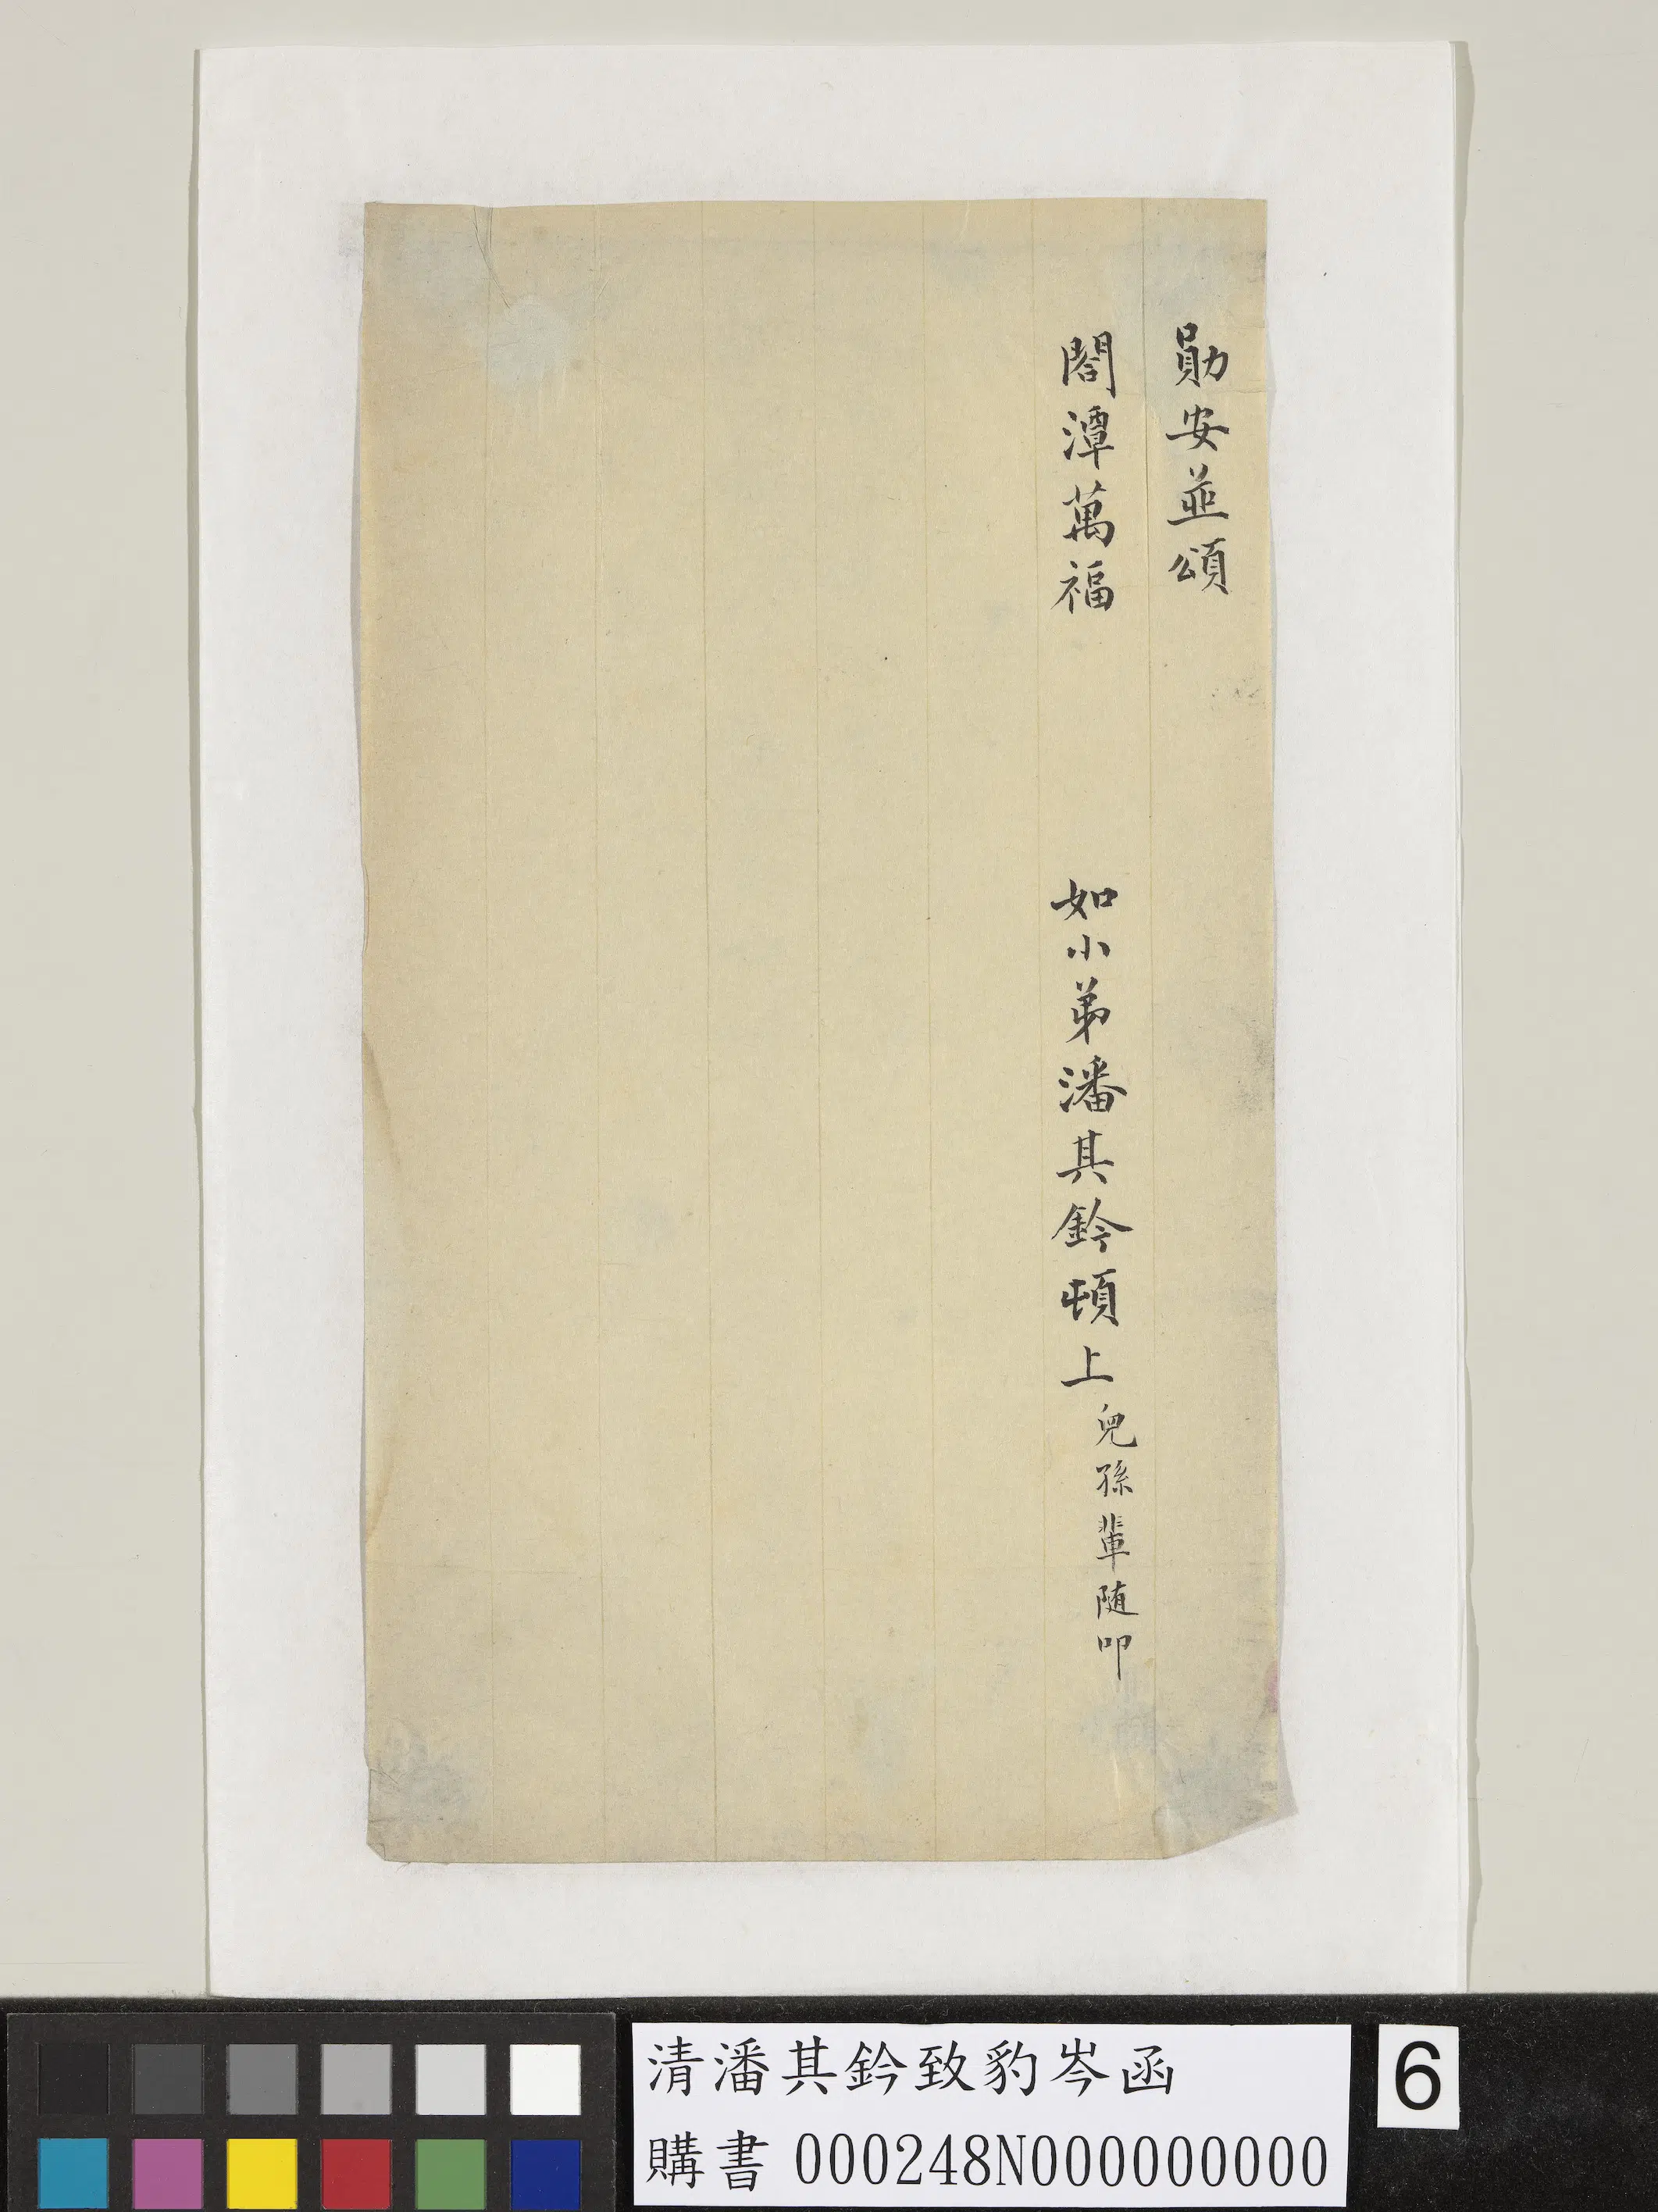 勛安並頌
閤潭萬福 如小弟潘其鈐頓上 兒孫輩随叩
清潘其鈐致豹岑函
購書 000248N000000000
6